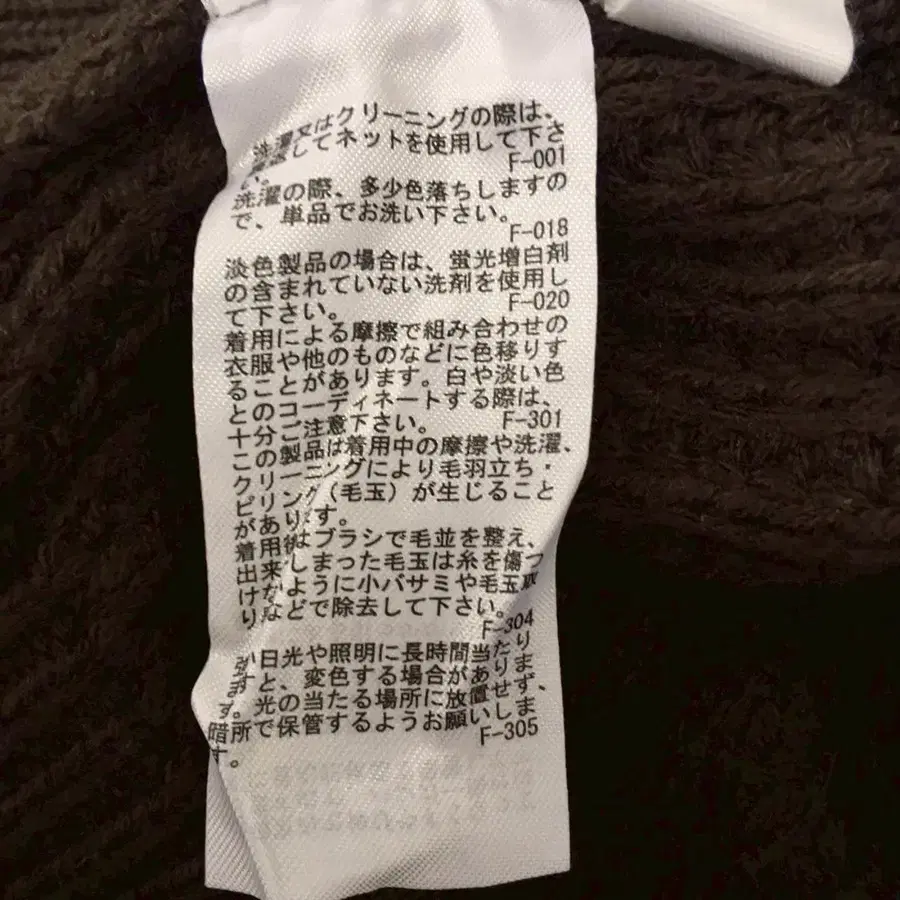 洗濯又はクリーニングの際は、
してネットを使用して下さ
い。
F-001
洗濯の際、多少色落ちしますの
で、単品でお洗い下さい。
F-018
淡色製品の場合は、蛍光増白剤
の含まれていない洗剤を使用し
て下さい。
F-020
着用による摩擦で組み合わせの
衣服や他のものなどに色移りす
ることがあります。白や淡い色
とのコーディネートする際は、
十分ご注意下さい。
F-301
この製品は着用中の摩擦や洗濯、
クリーニングにより毛羽立ち・
ピリング(毛玉)が生じること
があります。
着用後はブラシで毛並を整え、
出来てしまった毛玉は糸を傷つ
けないように小バサミや毛玉取
りなどで除去して下さい。
F-304
強い日光や照明に長時間当たり
ますと、変色する場合がありま
す。光の当たる場所に放置せず、
暗所で保管するようお願いしま
す。
F-305